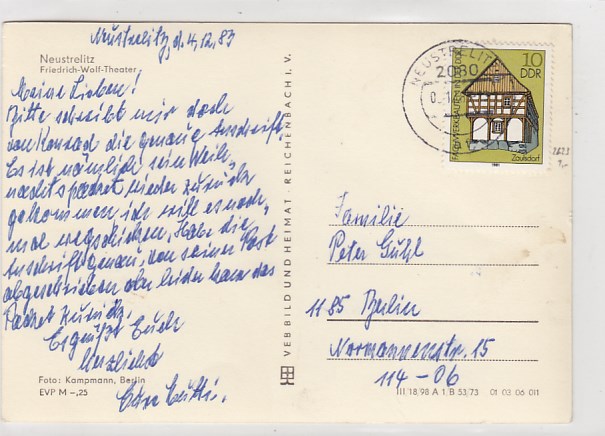 Neustrelitz, d. 4.12.83
Neustrelitz
Friedrich-Wolf-Theater
Meine Lieben!
Bitte schreibt mir doch
von Konrad die genaue Anschrift.
Es ist nämlich sein Weih,
nachtspacket wieder zurück
gekommen, ich will es noch,
mal wegschicken, Habe die
Anschrift genau, von seiner Post
abgeschrieben aber leider kam das
Packet zurück.
Es grüßt Euch
herzlichst
Foto: Kampmann, Berlin
EVP M –,25
VEB BILD UND HEIMAT REICHENBACH I. V.
NEUSTRELITZ
2080
10
DDR
FACHWERKBAUTEN IN DER DDR
Zaulsdorf
1981
2623
Familie
Peter Guhl
1185 Berlin
Normannenstr. 15
114-06
III 18 98 A 1 B 53/73 01 03 06 011